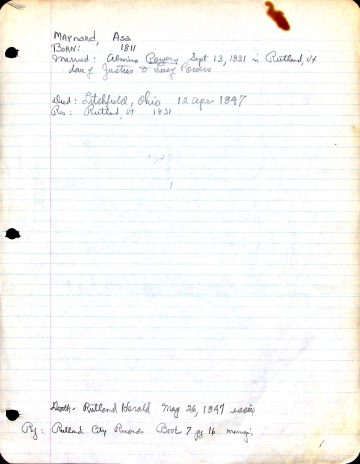 Maynard, Asa
Born: 1811
Married: Almira Powers Sept 13, 1831 in Rutland, Vt
dau of Justus & Lucy Powers
Died: Litchfield, Ohio 12 Apr 1847
Res: Rutland, Vt 1831
Death - Rutland Herald May 26, 1847
Ref: Rutland City Records Book 7 pg 16